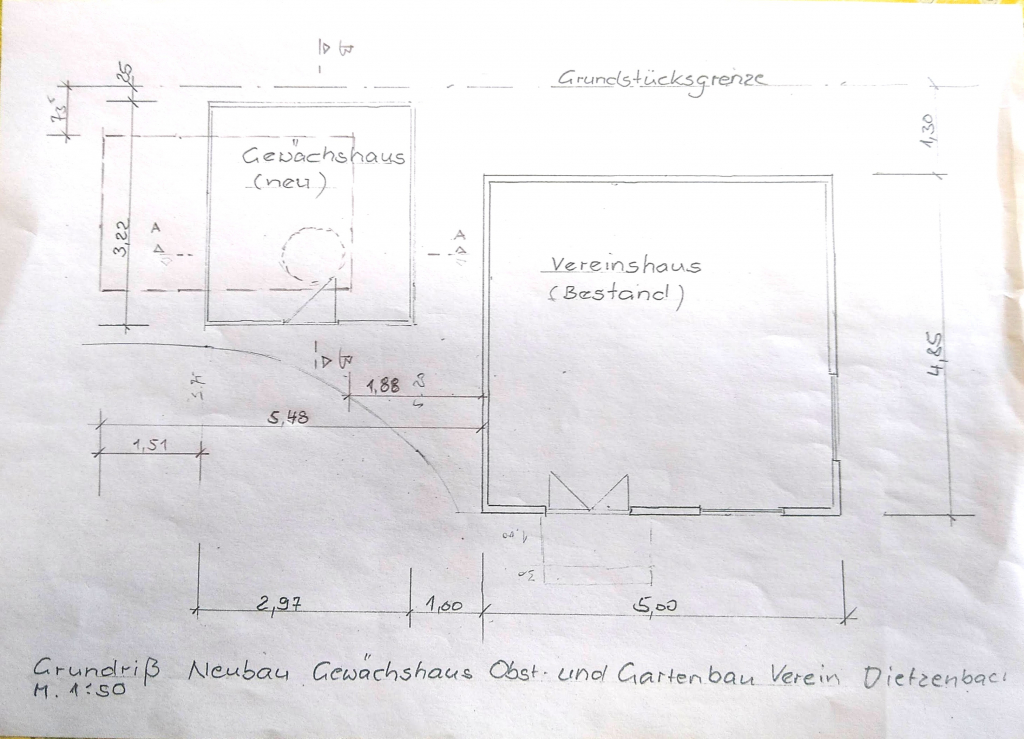 B
Grundstücksgrenze
25
73⁵
1,30
Gewächshaus
(neu)
3,22
A
A
Vereinshaus
(Bestand)
4,85
B
1,88
5,48
1,51
1,00
30
2,97
1,00
5,00
Grundriß Neubau Gewächshaus Obst- und Gartenbau Verein Dietzenbac
M. 1:50